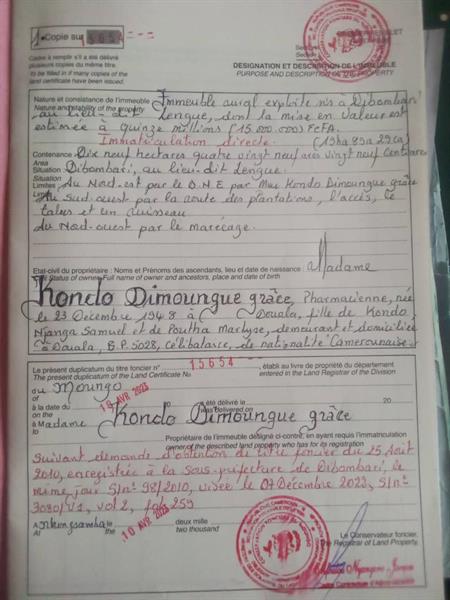 1 Copie sur 15654
Cadre à remplir s'il a été délivré
plusieurs copies du même titre.
to be filled in if many copies of the
land certificate have been issued.
DESIGNATION ET DESCRIPTION DE L'IMMEUBLE
PURPOSE AND DESCRIPTION OF THE PROPERTY
Nature et consistance de l'immeuble Immeuble rural exploité sis à Dibombari
Nature and
au lieu-dit Lengue, dont la mise en valeur est
estimée à quinze millions (15.000.000) FCFA.
Immatriculation directe. (19ha 89a 29ca)
Contenance Dix neuf hectares quatre vingt neuf ares vingt neuf centiares
Area
Situation Dibombari, au lieu-dit Lengue.
Situation
Limites Au Nord-est par le D.N.E par Mme Kondo Dimoungue grâce
Limits
Au Sud-ouest par la route des plantations, l'accès, le
talus et un ruisseau
Au Nord-ouest par le marécage.
Etat-civil du propriétaire : Noms et Prénoms des ascendants, lieu et date de naissance : Madame
Status of owner: Full name of owner and ancestors, place and date of birth
Kondo Dimoungue grâce, Pharmacienne, née
le 23 Décembre 1948 à Douala, fille de Kondo
Njanga Samuel et de Poutha Martyse, demeurant et domiciliée
à Douala, B.P. 5028, Célibataire, de nationalité Camerounaise
Le présent duplicatum du titre foncier n° 15654, établi au livre foncier du département
The present duplicatum of the Land Certificate No entered in the Land Registrar of the Division
du Moungo
of
à la date du 10 AVR 2023 a été délivré le 20
on the was delivered on
à Madame Kondo Dimoungue grâce
to
Propriétaire de l'immeuble désigné ci-contre, en ayant requis l'immatriculation
owner of the described land property who has for its registration
Suivant demande d'obtention de titre foncier du 25 Août
2010, enregistrée à la Sous-préfecture de Dibombari, le
même jour S/n° 98/2010, visée le 07 Décembre 2023, S/n°
3080/V1, Vol 2, fol 259
A Nkongsamba le 10 AVR 2023 deux mille
At the two thousand
Le Conservateur foncier,
The Registrar of Land Property,